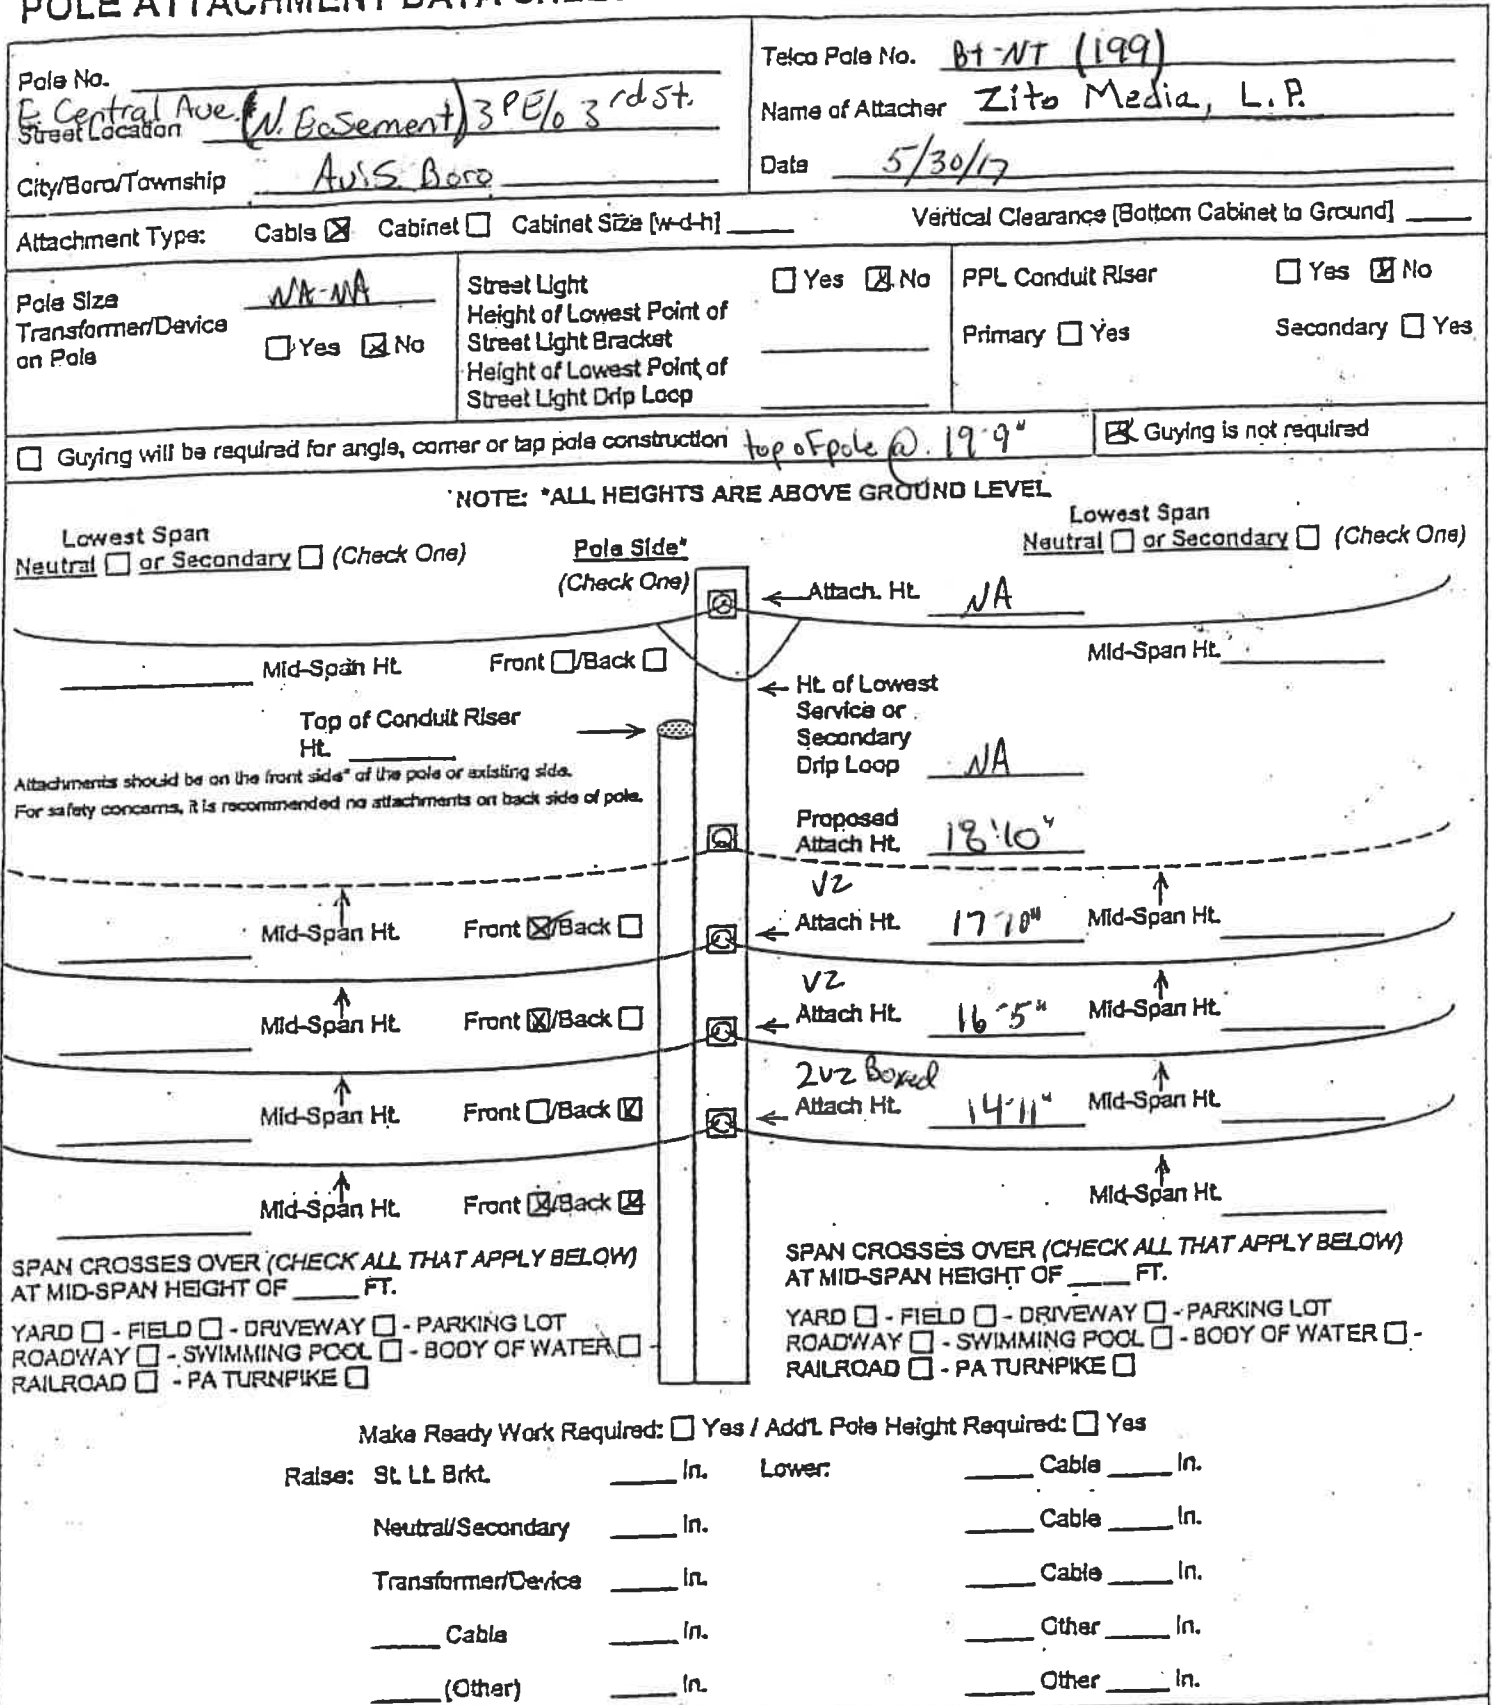 POLE ATTACHMENT DATA SHEET
Pole No.
E Central Ave. (N. Easement) 3 PE/o 3rd St.
Street Location
City/Boro/Township Avis Boro
Telco Pole No. Bt-NT (199)
Name of Attacher Zito Media, L.P.
Date 5/30/17
Attachment Type: Cable ☒ Cabinet ☐ Cabinet Size [w-d-h] ____ Vertical Clearance [Bottom Cabinet to Ground] ____
Pole Size NA-NA
Transformer/Device
on Pole ☐ Yes ☒ No
Street Light ☐ Yes ☒ No
Height of Lowest Point of
Street Light Bracket
Height of Lowest Point of
Street Light Drip Loop
PPL Conduit Riser ☐ Yes ☒ No
Primary ☐ Yes Secondary ☐ Yes
☐ Guying will be required for angle, corner or tap pole construction top of pole @ 19'9" ☒ Guying is not required
NOTE: *ALL HEIGHTS ARE ABOVE GROUND LEVEL
Lowest Span
Neutral ☐ or Secondary ☐ (Check One)
Pole Side*
(Check One)
Lowest Span
Neutral ☐ or Secondary ☐ (Check One)
Attach. Ht. NA
Mid-Span Ht. Front ☐/Back ☐ Mid-Span Ht.
Top of Conduit Riser
Ht.
Ht. of Lowest
Service or
Secondary
Drip Loop NA
Attachments should be on the front side* of the pole or existing side.
For safety concerns, it is recommended no attachments on back side of pole.
Proposed
Attach Ht. 18'10"
VZ
Mid-Span Ht. Front ☒/Back ☐ Attach Ht. 17'10" Mid-Span Ht.
VZ
Mid-Span Ht. Front ☒/Back ☐ Attach Ht. 16'5" Mid-Span Ht.
2VZ Boxed
Mid-Span Ht. Front ☐/Back ☒ Attach Ht. 14'11" Mid-Span Ht.
Mid-Span Ht. Front ☒/Back ☒ Mid-Span Ht.
SPAN CROSSES OVER (CHECK ALL THAT APPLY BELOW)
AT MID-SPAN HEIGHT OF ____ FT.
YARD ☐ - FIELD ☐ - DRIVEWAY ☐ - PARKING LOT
ROADWAY ☐ - SWIMMING POOL ☐ - BODY OF WATER ☐ -
RAILROAD ☐ - PA TURNPIKE ☐
SPAN CROSSES OVER (CHECK ALL THAT APPLY BELOW)
AT MID-SPAN HEIGHT OF ____ FT.
YARD ☐ - FIELD ☐ - DRIVEWAY ☐ - PARKING LOT
ROADWAY ☐ - SWIMMING POOL ☐ - BODY OF WATER ☐ -
RAILROAD ☐ - PA TURNPIKE ☐
Make Ready Work Required: ☐ Yes / Add'l. Pole Height Required: ☐ Yes
Raise: St. Lt. Brkt. ____ In. Lower: ____ Cable ____ In.
Neutral/Secondary ____ In. ____ Cable ____ In.
Transformer/Device ____ In. ____ Cable ____ In.
____ Cable ____ In. ____ Other ____ In.
____ (Other) ____ In. ____ Other ____ In.